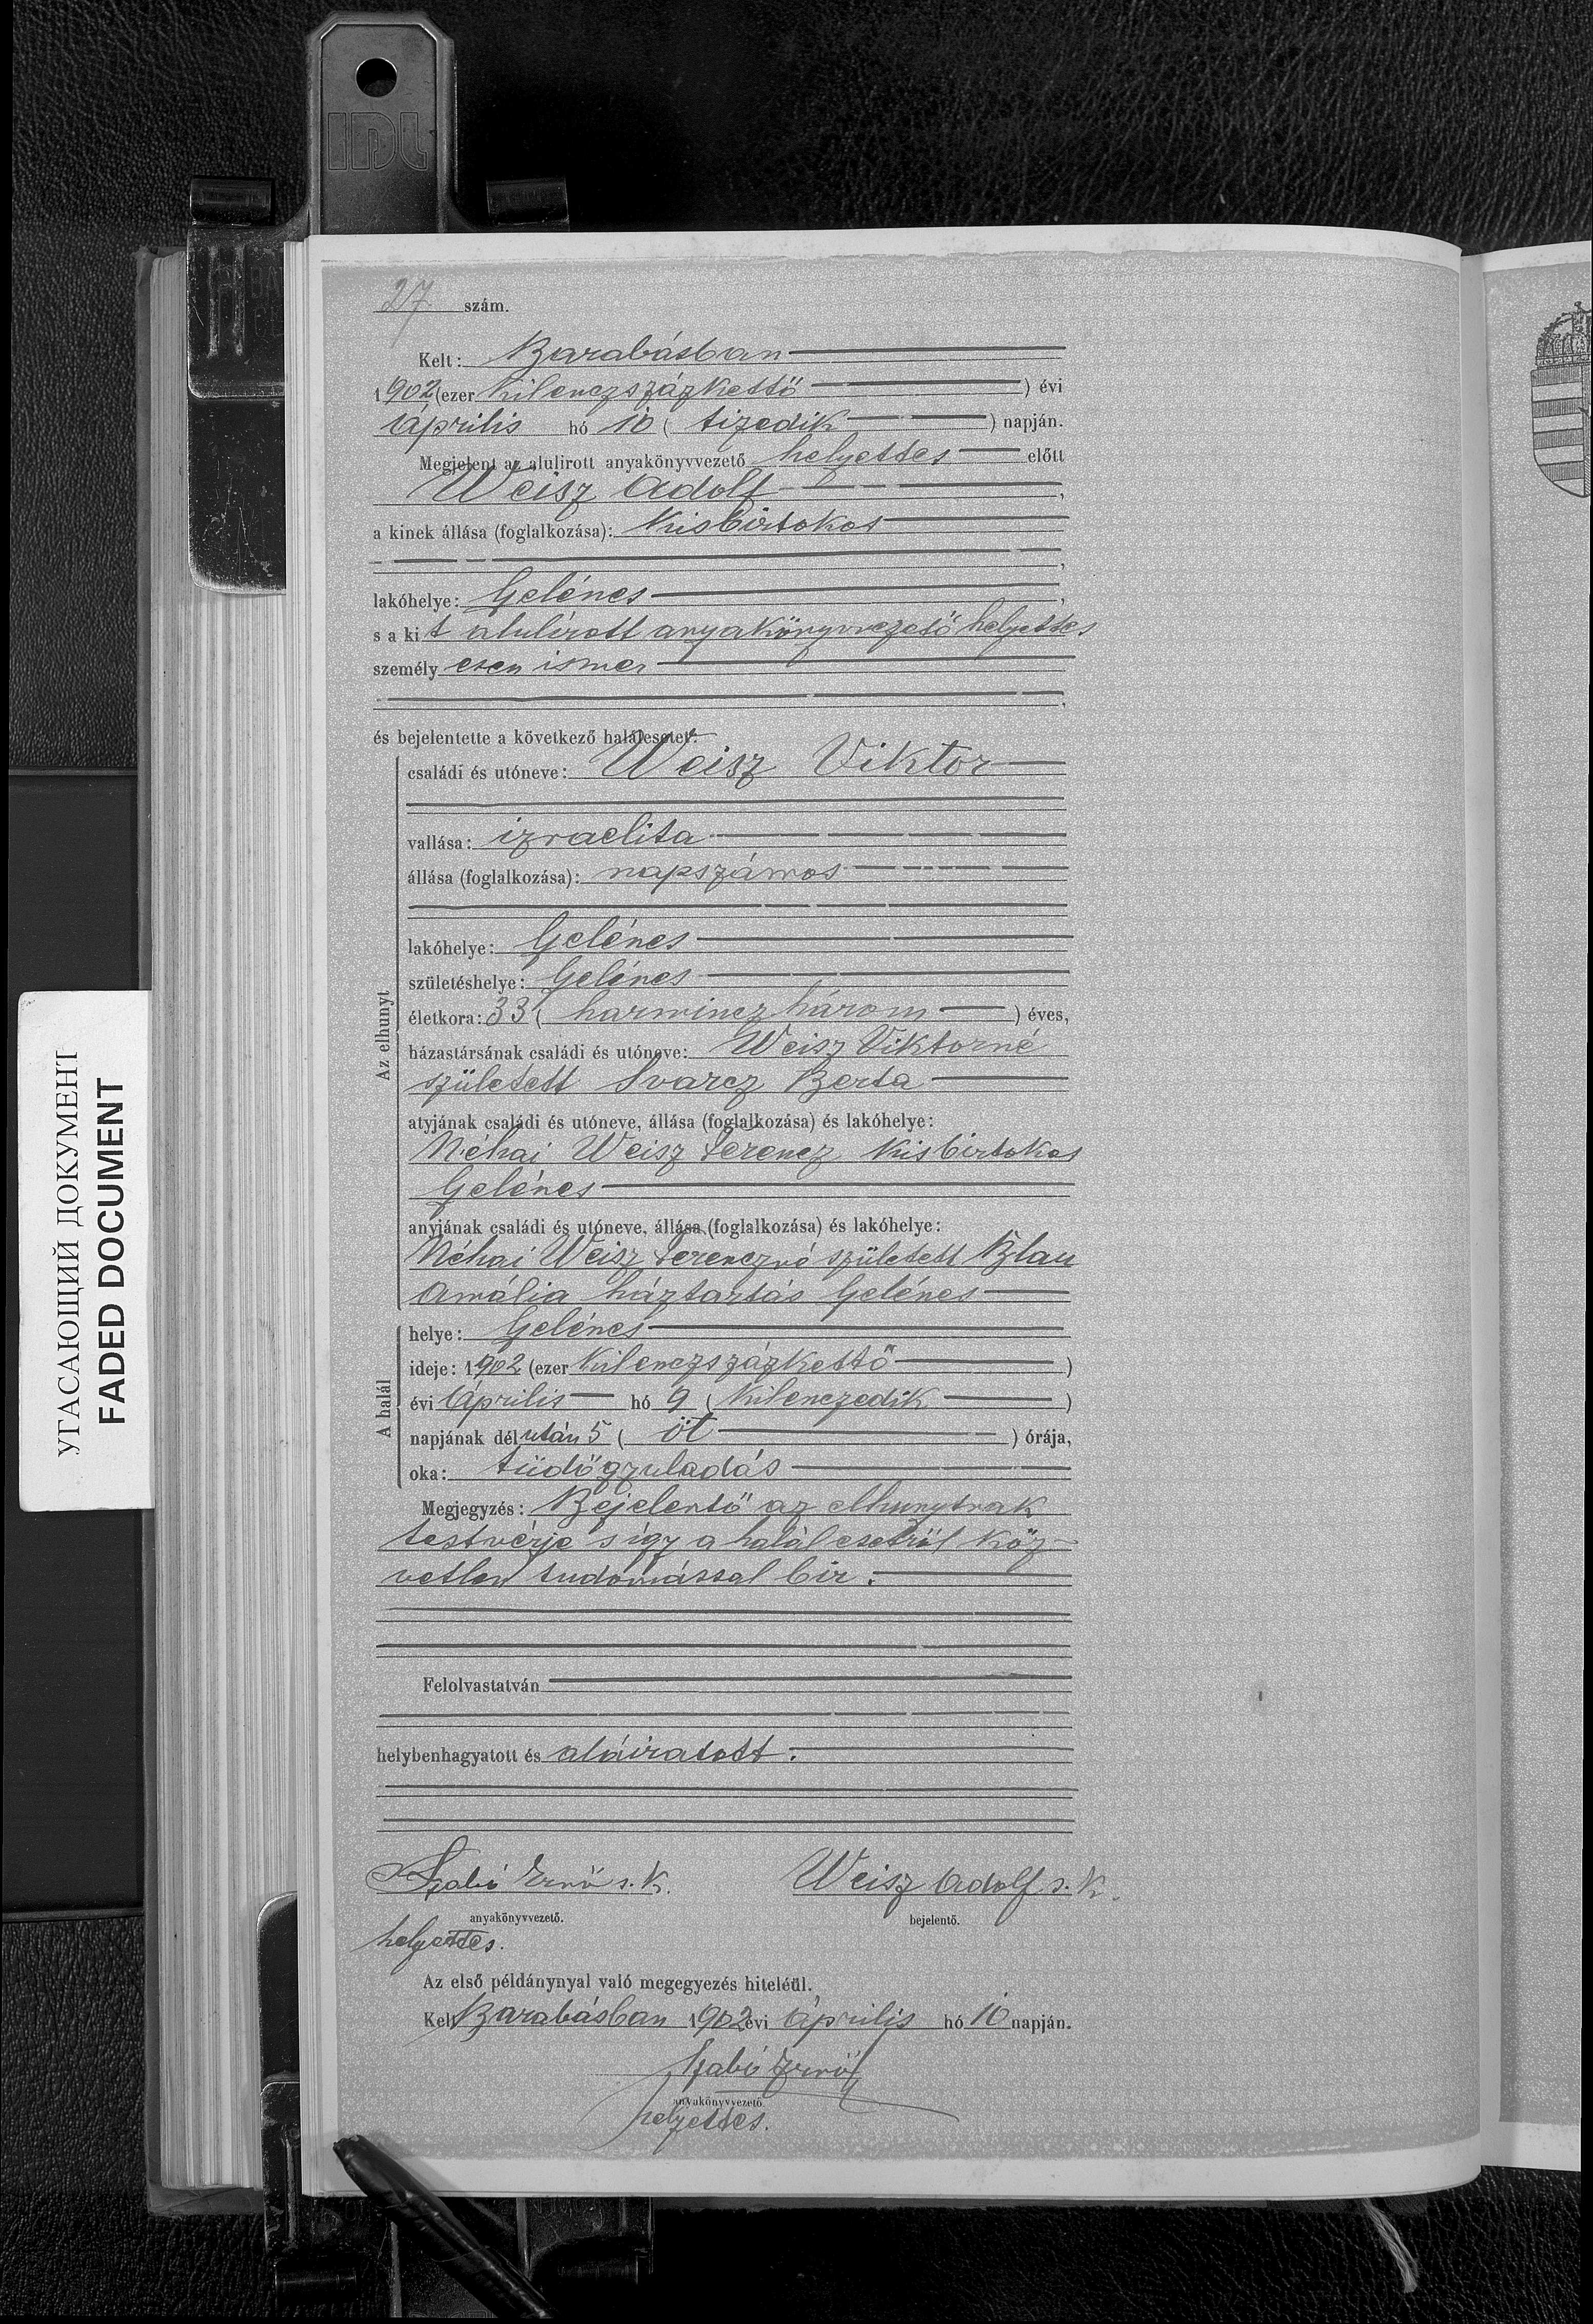 IDL
27 szám.
Kelt: Barabásban
1902 (ezer kilenczszázkettő ) évi
április hó 10 ( tizedik ) napján.
Megjelent az alulirott anyakönyvvezető helyettes előtt
Weisz Adolf ,
a kinek állása (foglalkozása): kisbirtokos
,
lakóhelye: Gelénes ,
s a kit alulirott anyakönyvvezető helyettes
személyesen ismer
,
és bejelentette a következő halálesetet:
Az elhunyt
családi és utóneve: Weisz Viktor
vallása: izraelita
állása (foglalkozása): napszámos
lakóhelye: Gelénes
születéshelye: Gelénes
életkora: 33 ( harmincz három ) éves,
házastársának családi és utóneve: Weisz Viktorné
született Svarcz Berta
atyjának családi és utóneve, állása (foglalkozása) és lakóhelye:
Néhai Weisz Ferencz kisbirtokos
Gelénes
anyjának családi és utóneve, állása (foglalkozása) és lakóhelye:
Néhai Weisz Ferenczné született Blau
Amália háztartás Gelénes
A halál
helye: Gelénes
ideje: 1902 (ezer kilenczszázkettő )
évi április hó 9 ( kilenczedik )
napjának délután 5 ( öt ) órája,
oka: tüdőgyuladás
Megjegyzés: Bejelentő az elhunytnak
testvérje s így a halálesetről köz-
vetlen tudomással bir.
Felolvastatván
helybenhagyatott és aláiratott.
Szabó Ernő s. k. Weisz Adolf s. k.
anyakönyvvezető. bejelentő.
helyettes.
Az első példánynyal való megegyezés hiteléül.
Kelt Barabásban 1902 évi április hó 10 napján.
Szabó Ernő
anyakönyvvezető
helyettes.
УГАСАЮЩИЙ ДОКУМЕНТ
FADED DOCUMENT